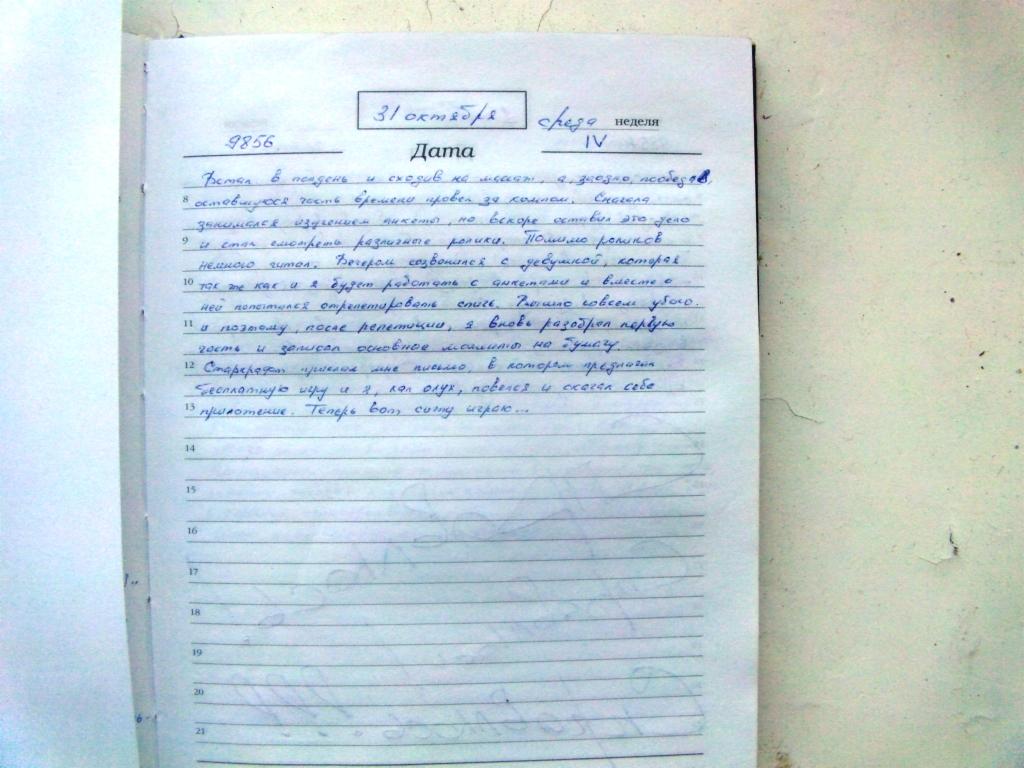 31 октября среда неделя
9856 IV
Дата
Встал в полдень и сходив на массаж, а, заодно, пообедав,
8 оставшуюся часть времени провел за компом. Сначала
занимался изучением анкеты, но вскоре оставил это дело
9 и стал смотреть различные ролики. Помимо роликов
немного читал. Вечером созвонился с девушкой, которая
10 так же как и я будет работать с анкетами и вместе с
ней попытался отрепетировать стиль. Вышло совсем убого.
11 и поэтому, после репетиции, я вновь разобрал первую
часть и записал основные моменты на бумагу.
12 Старкрафт прислал мне письмо, в котором предлагал
бесплатную игру и я, как олух, повелся и скачал себе
13 приложение. Теперь вот сижу играю...
14
15
16
17
18
19
20
21